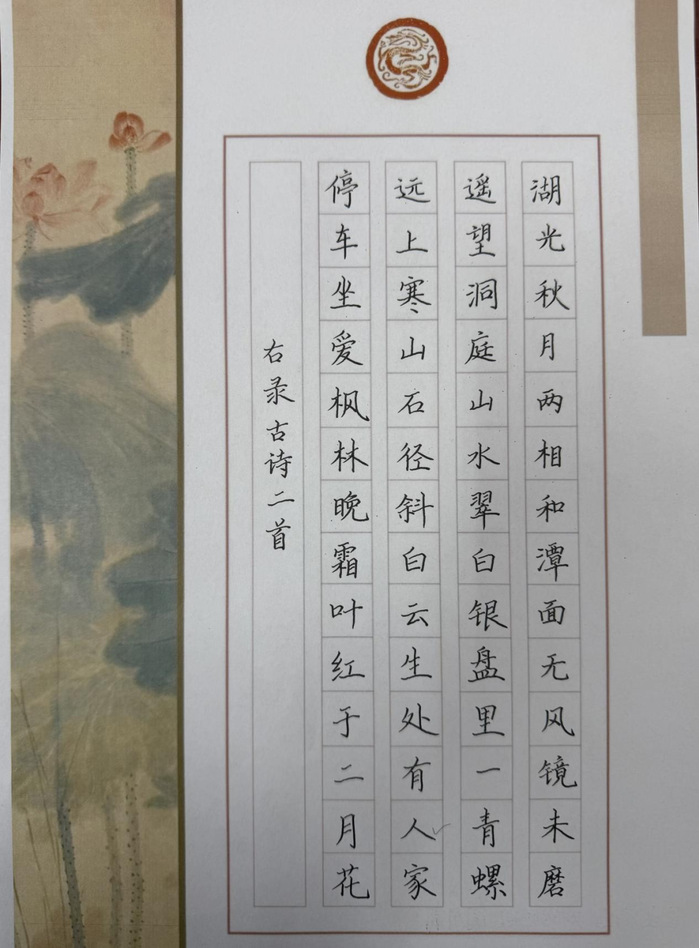 湖光秋月两相和潭面无风镜未磨
遥望洞庭山水翠白银盘里一青螺
远上寒山石径斜白云生处有人家
停车坐爱枫林晚霜叶红于二月花
右录古诗二首